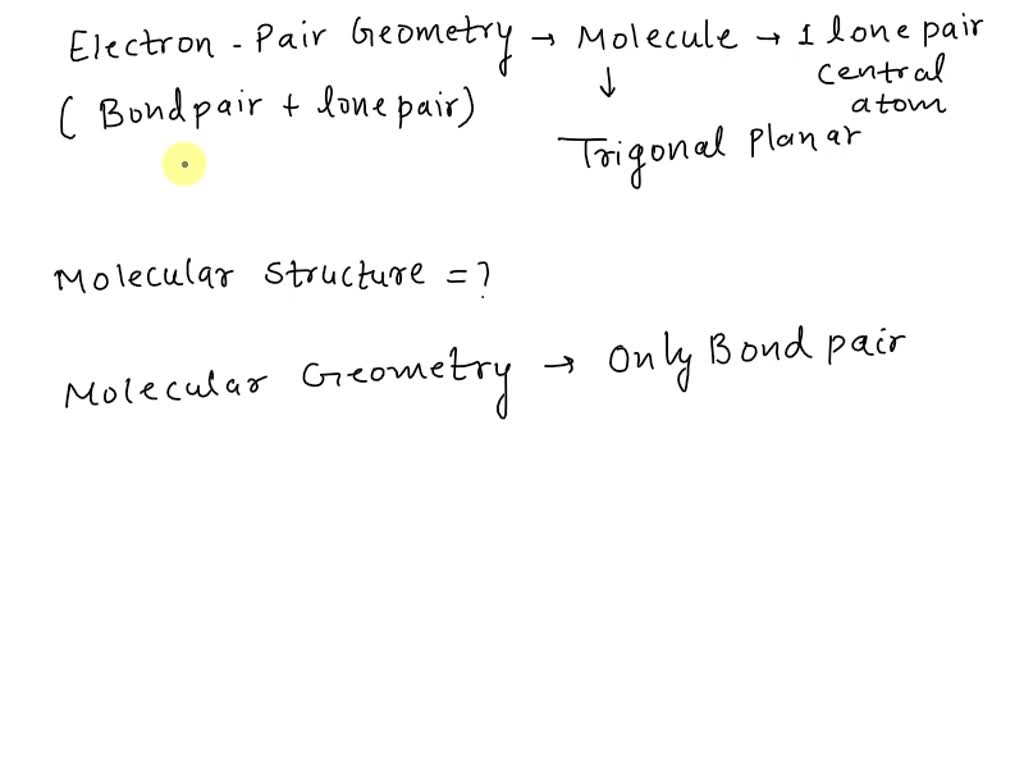 Electron - Pair Geometry → Molecule → 1 lone pair
central
atom
(Bond pair + lone pair)
↓
Trigonal Planar
Molecular Structure = ?
Molecular Geometry → Only Bond pair